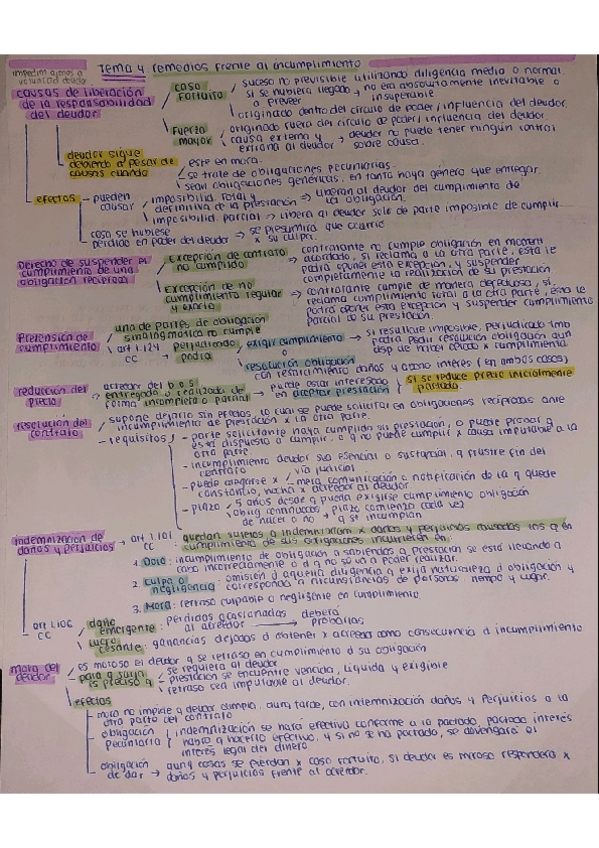 Tema 4 remedios frente al incumplimiento
voluntad deudor
causas de liberación de la responsabilidad del deudor
caso fortuito
suceso no previsible utilizando diligencia media o normal.
si se hubiera llegado a preveer → no era absolutamente inevitable o insuperable
originado dentro del círculo de poder/influencia del deudor.
Fuerza mayor
originado fuera del círculo de poder/influencia del deudor.
causa externa y extraña al deudor → deudor no puede tener ningún control sobre causa.
deudor sigue debiendo a pesar de causas cuando
esté en mora.
se trate de obligaciones pecuniarias.
sean obligaciones genéricas, en tanto haya género que entregar.
efectos
pueden causar
imposibilid. total y definitiva de la prestación ⇒ liberan al deudor del cumplimiento de la obligación.
imposibilid. parcial → libera al deudor solo de parte imposible de cumplir
cosa se hubiese perdido en poder del deudor → se presumirá que ocurrió x su culpa.
Derecho de suspender el cumplimiento de una obligación recíproca
excepción de contrato no cumplido
⇒ contratante no cumple obligación en momento acordado, si reclama a la otra parte, esta le podrá oponer esta excepción, y suspender completamente la realización de su prestación
excepción de no cumplimiento regular y exacto
⇒ contratante cumple de manera defectuosa, si reclama cumplimiento total a la otra parte, esta le podrá oponer esta excepción y suspender cumplimiento parcial de su prestación.
Pretensión de cumplimiento
una de partes de obligación sinalagmática no cumple
art 1.124 CC → perjudicado podrá
exigir cumplimiento → si resultare imposible, perjudicado tmb podrá pedir resolución obligación aun dsp de haber optado x cumplimiento.
o
resolución obligación
con resarcimiento daños y abono interés (en ambos casos)
reducción del precio
acreedor del b o s entregado o realizado de forma incompleta o parcial → puede estar interesado en aceptar prestación
si se reduce precio inicialmente pactado
resolución del contrato
supone dejarlo sin efectos, lo cual se puede solicitar en obligaciones recíprocas ante incumplimiento de prestación x la otra parte.
requisitos
- parte solicitante haya cumplido su prestación, o puede probar q está dispuesto a cumplir, o q no puede cumplir x causa imputable a la otra parte
- incumplimiento deudor sea esencial o sustancial, q frustre fin del contrato
- puede alegarse x
vía judicial
mera comunicación o notificación de la q quede constancia, hecha x acreedor al deudor.
- plazo
5 años desde q pueda exigirse cumplimiento obligación
oblig. continuadas de hacer o no → plazo comienza cada vez q se incumplan
indemnización de daños y perjuicios
art 1.101 CC : quedan sujetos a indemnización x daños y perjuicios causados los q en cumplimiento de sus obligaciones incurrieren en:
1. Dolo: incumplimiento de obligación a sabiendas q prestación se está llevando a cabo incorrectamente o d q no se va a poder realizar.
2. culpa o negligencia : omisión d aquella diligencia q exija naturaleza d obligación y corresponda a circunstancias de personas tiempo y lugar.
3. Mora: retraso culpable o negligente en cumplimiento.
art 1.106 CC
daño emergente : perdidas ocasionadas al acreedor → deberá probarlas
lucro cesante: ganancias dejadas d obtener x acreedor como consecuencia d incumplimiento
mora del deudor
es moroso el deudor q se retrasa en cumplimiento d su obligación
para q surja es preciso q
se requiera al deudor
prestación se encuentre vencida, líquida y exigible
retraso sea imputable al deudor.
efectos
mora no impide q deudor cumpla, aunq tarde, con indemnización daños y Perjuicios a la otra parte del contrato
obligación pecuniaria
indemnización se hará efectivo conforme a lo pactado, pactado interés
y si no se ha pactado, se devengará el interés legal del dinero
obligación de dar → aunq cosas se pierdan x caso fortuito, si deudor es moroso responderá x daños y perjuicios frente al acreedor.